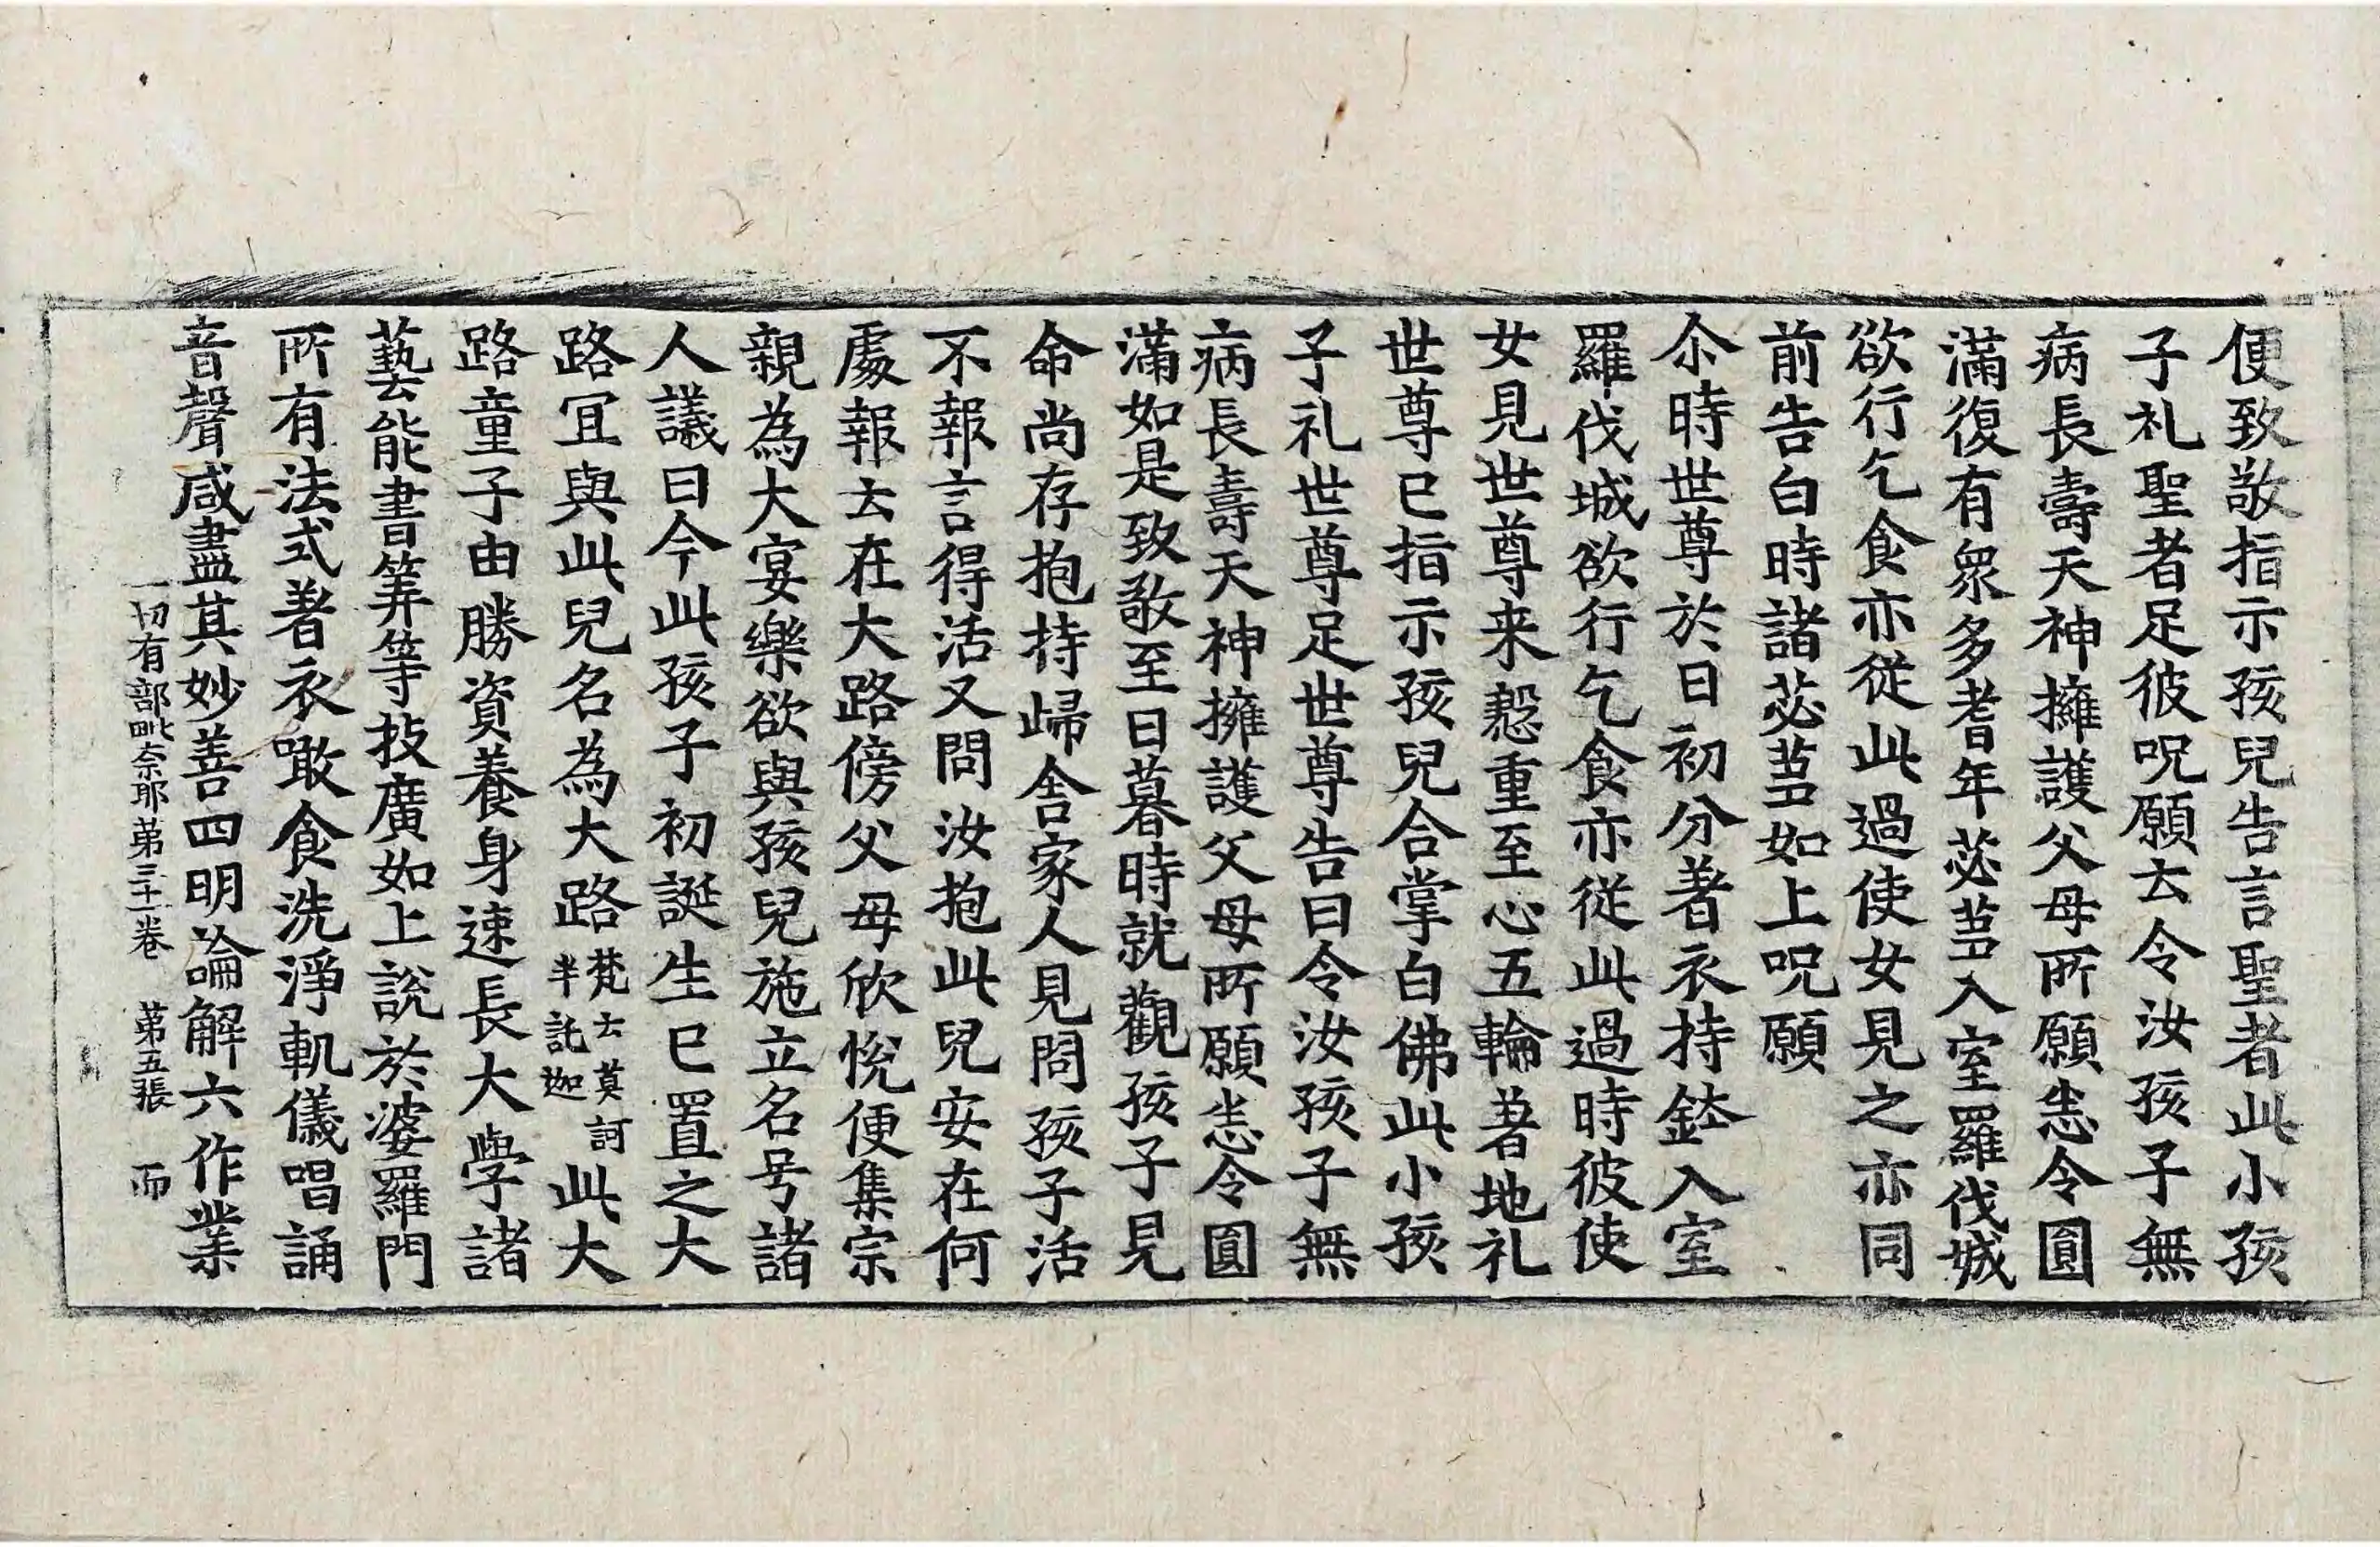 便致敬指示孩兒告言聖者此小孩
子礼聖者足彼呪願云令汝孩子無
病長壽天神擁護父母所願恙令圓
滿復有衆多耆年苾蒭入室羅伐城
欲行乞食亦從此過使女見之亦同
前告白時諸苾蒭如上呪願
尒時世尊於日初分著衣持鉢入室
羅伐城欲行乞食亦從此過時彼使
女見世尊来慇重至心五輪著地礼
世尊巳指示孩兒合掌白佛此小孩
子礼世尊足世尊告曰令汝孩子無
病長壽天神擁護父母所願恙令圓
滿如是致敬至日暮時就觀孩子見
命尚存抱持歸舍家人見問孩子活
不報言得活又問汝抱此兒安在何
處報云在大路傍父母欣悅便集宗
親為大宴樂欲與孩兒施立名号諸
人議曰今此孩子初誕生巳置之大
路宜與此兒名為大路梵云莫訶半託迦此大
路童子由勝資養身速長大學諸
藝能書筭等技廣如上說於婆羅門
所有法式著衣噉食洗淨軌儀唱誦
音聲咸盡其妙善四明論解六作業
一切有部毗奈耶第三十一卷 第五張 而